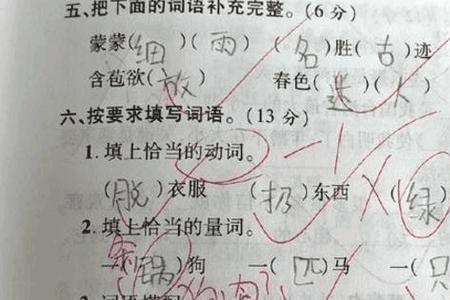 五、把下面的词语补充完整。(6分)
蒙蒙(细)(雨) (名)胜(古)迹
含苞欲(放) 春色(迷)(人)
六、按要求填写词语。(13分)
1.填上恰当的动词。
(脱)衣服 (扔)东西 (绿
2.填上恰当的量词。
一(锅)狗 一(匹)马 一(只